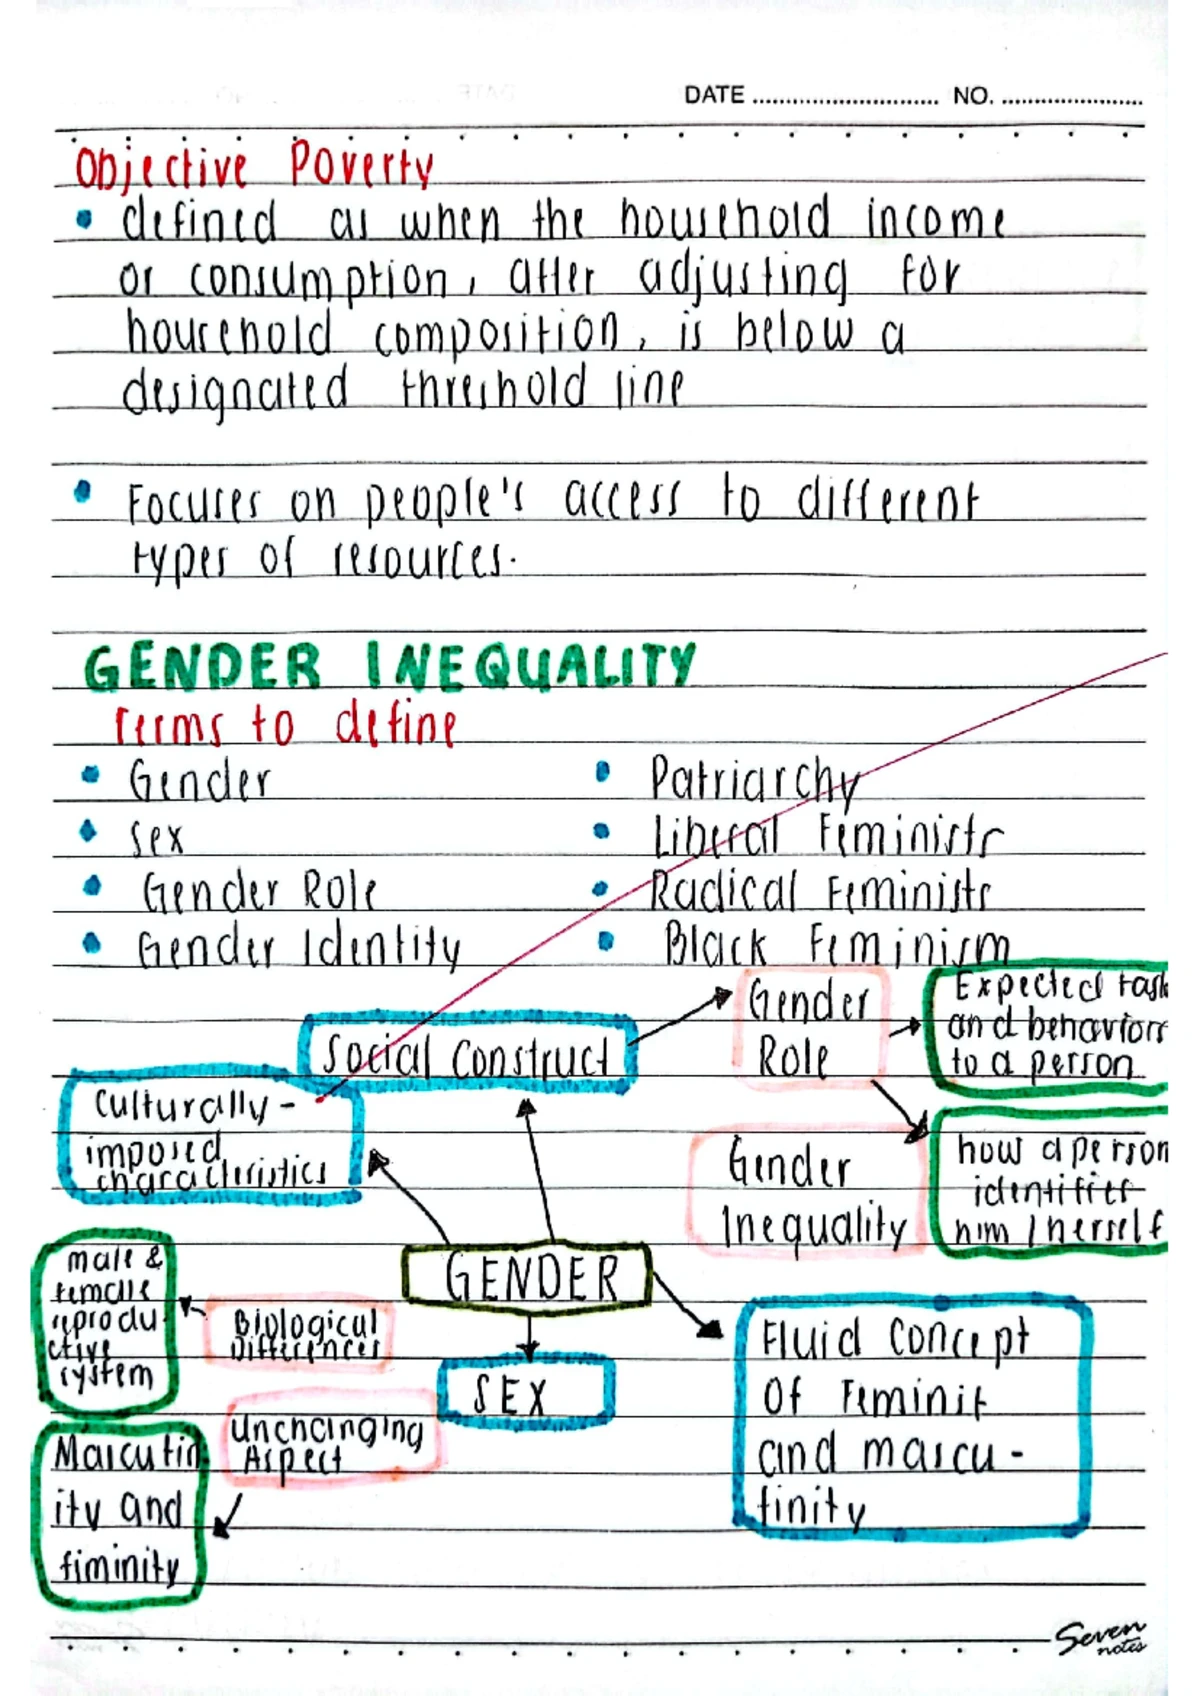 DATE ............................ NO. .....................
Objective Poverty
• defined as when the household income
or consumption, after adjusting for
household composition, is below a
designated threshold line
• Focuses on people's access to different
types of resources.
GENDER INEQUALITY
Terms to define
• Gender
• Sex
• Gender Role
• Gender Identity
• Patriarchy
• Liberal Feminists
• Radical Feminists
• Black Feminism
Social Construct
Gender
Role
Expected task
and behaviors
to a person
Culturally-
imposed
characteristics
Gender
Inequality
how a person
identifies
him/herself
GENDER
male &
female
reprodu
ctive
system
Biological
Differences
SEX
Fluid Concept
Of Feminit
and mascu-
finity
Unchanging
Aspect
Masculin
ity and
fiminity
Seven
notes